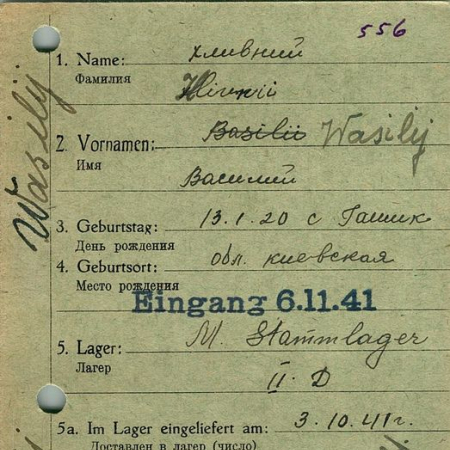 556
1. Name: хливний
Фамилия
Hlivnii
2. Vornamen: Basilii Wasilij
Имя
Василий
Wasilij
3. Geburtstag: 13.1.20 с Гашик
День рождения
4. Geburtsort: обл. киевская
Место рождения
Eingang 6.11.41
5. Lager: M. Stammlager
Лагер
II. D
5a. Im Lager eingeliefert am: 3.10.41г.
Доставлен в лагер (число)